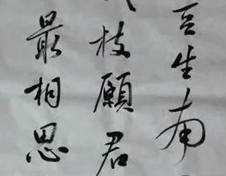 豆生南
枝願君
最相思